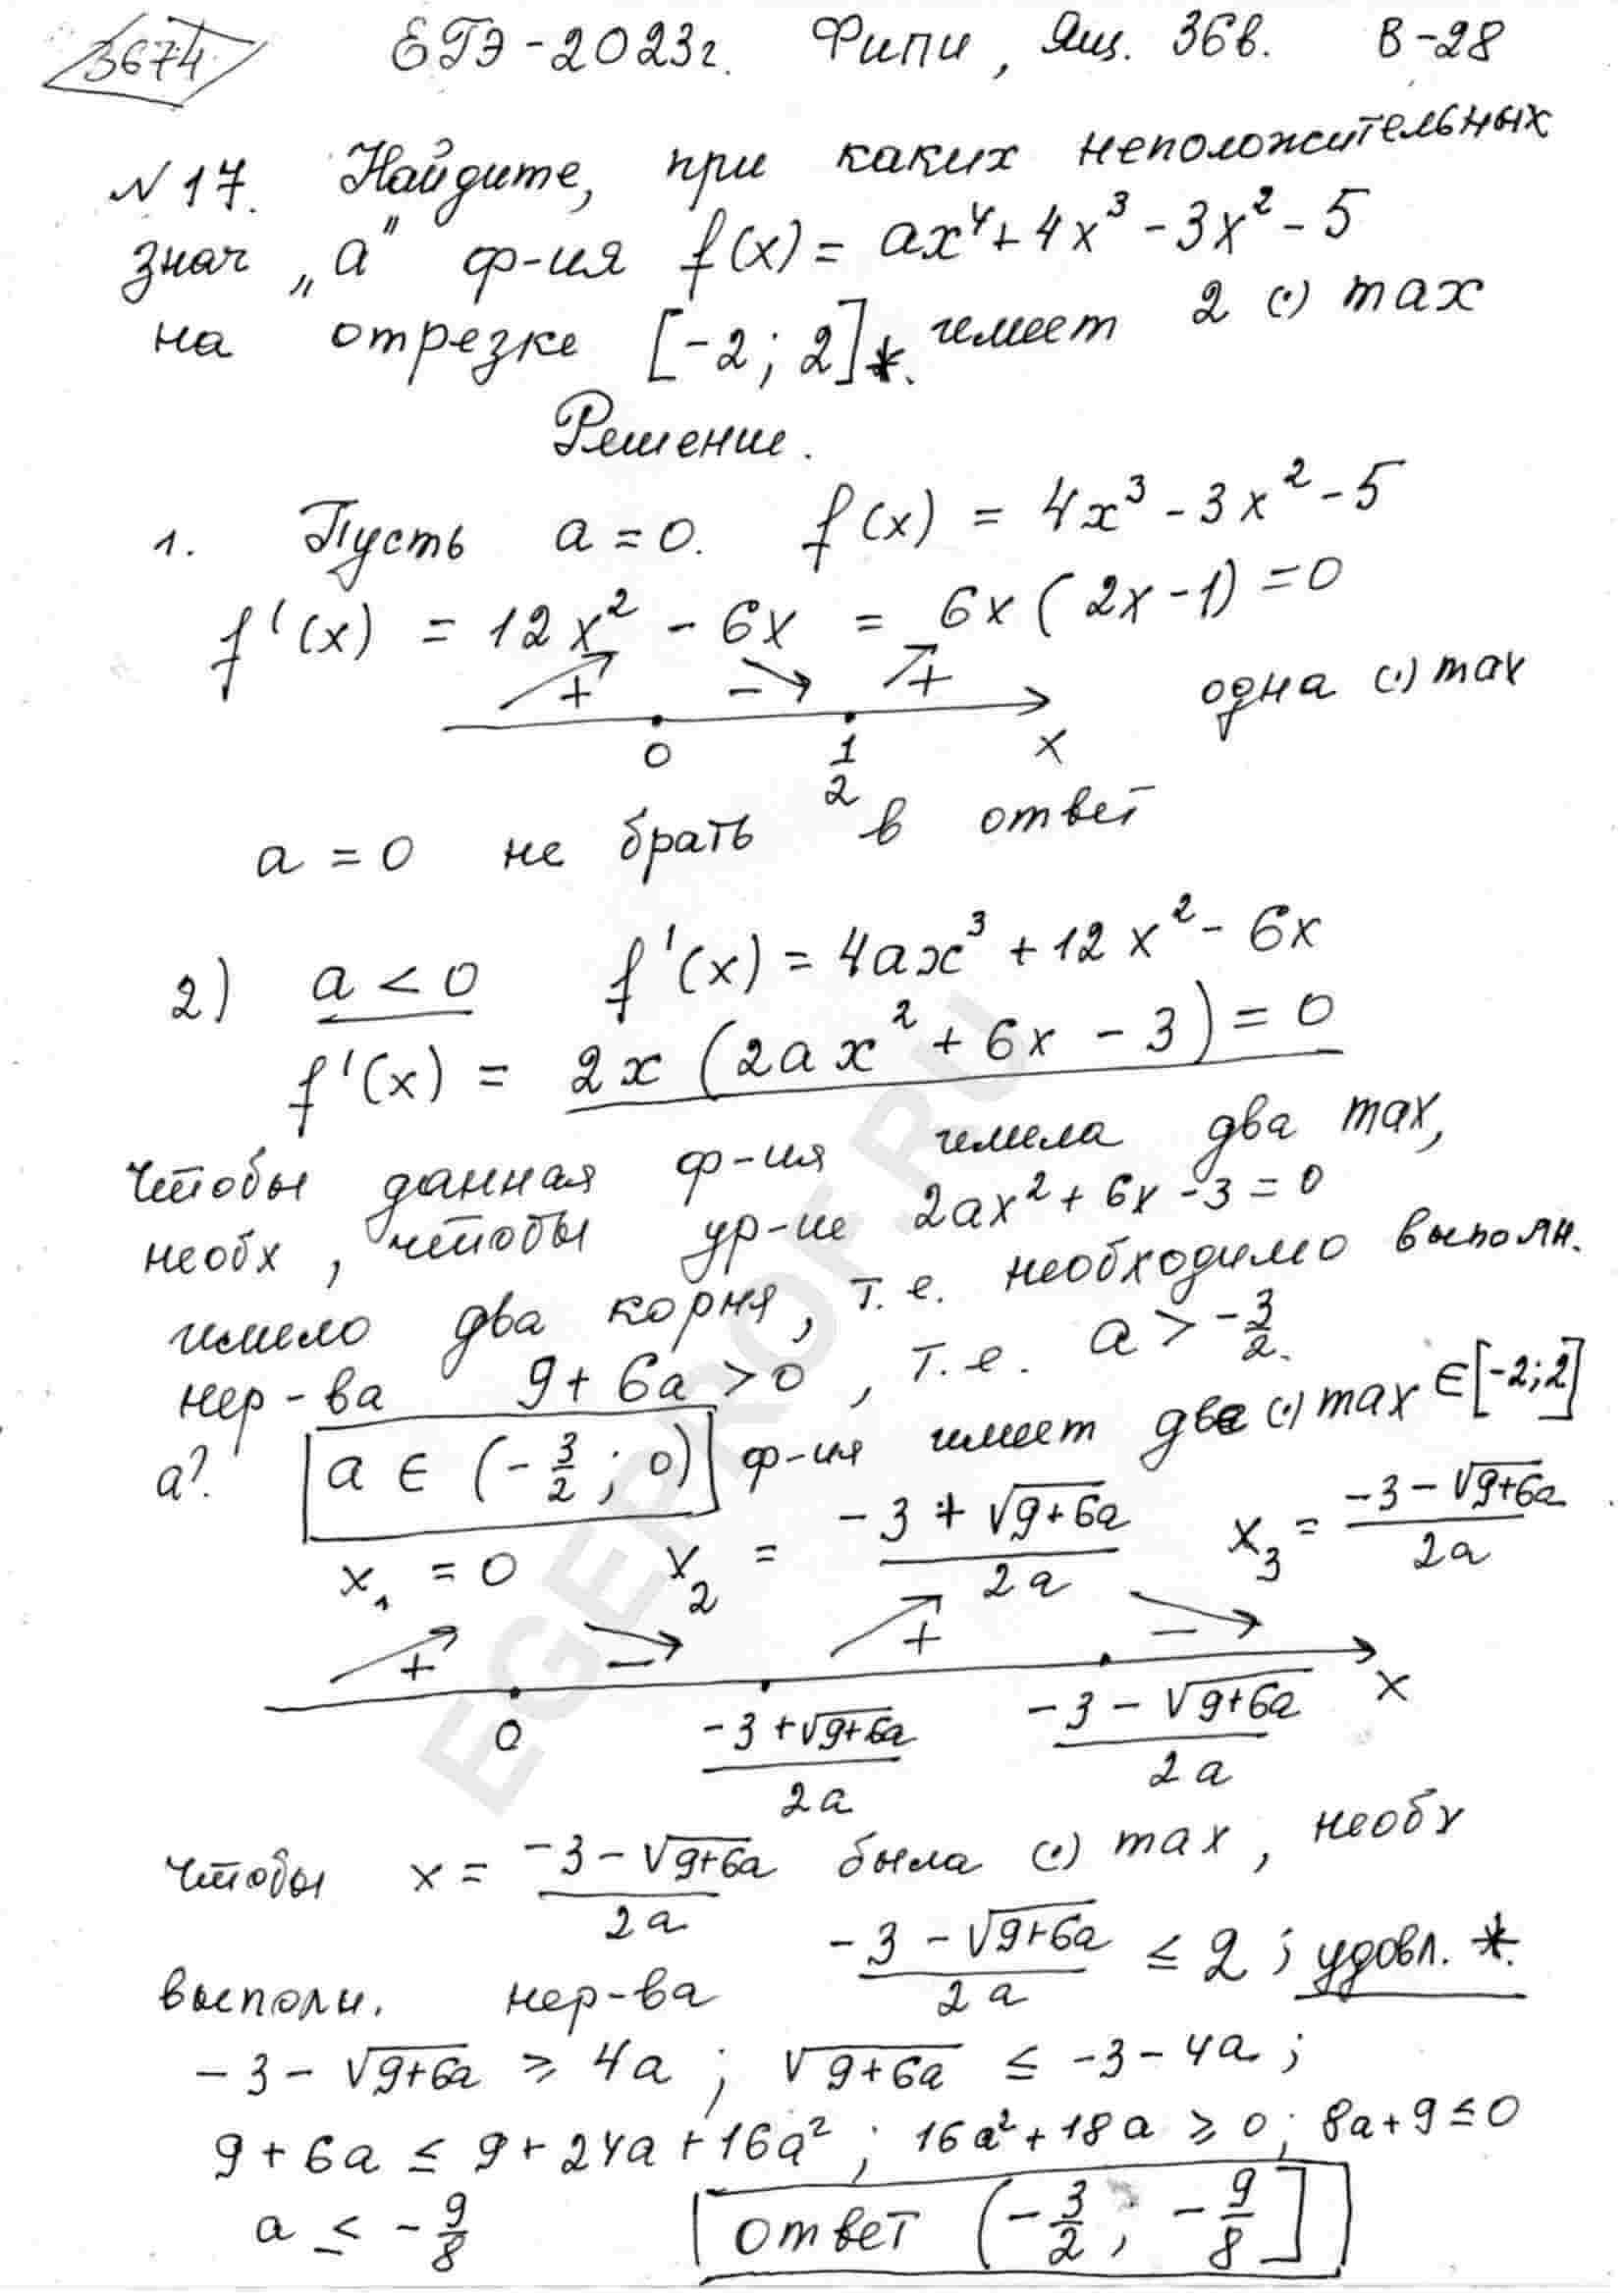 3674 ЕГЭ-2023г. Фипи, Ящ. 36в. В-28
№17. Найдите, при каких неположительных
знач „а" ф-ия f(x) = ax⁴ + 4x³ - 3x² - 5
на отрезке [-2; 2]*. имеет 2 (·) max
Решение.
1. Пусть a = 0. f(x) = 4x³ - 3x² - 5
f'(x) = 12x² - 6x = 6x(2x - 1) = 0
+ - + одна (·) max
0 1/2 x
a = 0 не брать в ответ
2) a < 0 f'(x) = 4ax³ + 12x² - 6x
f'(x) = 2x(2ax² + 6x - 3) = 0
Чтобы данная ф-ия имела два max,
необх, чтобы ур-ие 2ax² + 6x - 3 = 0
имело два корня, т.е. необходимо выполн.
нер-ва 9 + 6a > 0, т.е. a > -3/2.
a? a ∈ (-3/2; 0) ф-ия имеет две (·) max ∈ [-2;2]
x₁ = 0 x₂ = (-3 + √(9+6a))/2a x₃ = (-3 - √(9+6a))/2a
+ - + -
0 (-3 + √(9+6a))/2a (-3 - √(9+6a))/2a x
Чтобы x = (-3 - √(9+6a))/2a была (·) max, необх
выполн. нер-ва (-3 - √(9+6a))/2a ≤ 2; удовл. *.
-3 - √(9+6a) ≥ 4a; √(9+6a) ≤ -3 - 4a;
9 + 6a ≤ 9 + 24a + 16a²; 16a² + 18a ≥ 0; 8a + 9 ≤ 0
a ≤ -9/8 ответ (-3/2; -9/8]
EGEPROF.RU